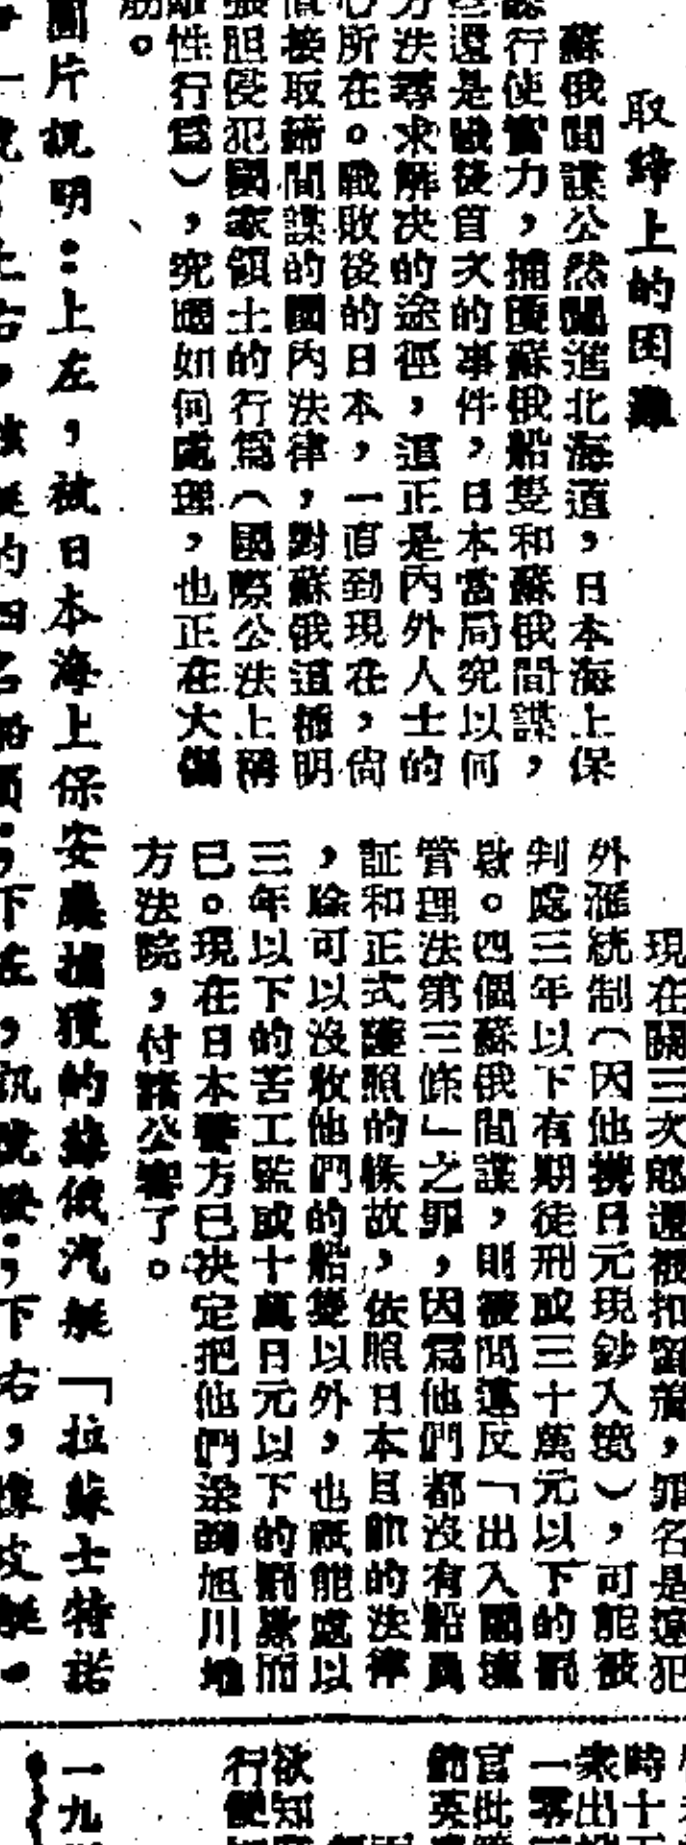 取締上的困難
蘇俄間諜公然闖進北海道，日本海上保
行使實力，捕獲蘇俄船隻和蘇俄間諜，
還是戰後首次的事件，日本當局究以何
方法尋求解決的途徑，這正是內外人士的
心所在。戰敗後的日本，一直到現在，尙
接取締間諜的國內法律，對蘇俄這種明
張胆侵犯國家領土的行爲（國際公法上稱
性行爲），究應如何處理，也正在大傷
筋。
現在關三次郎還被扣留着，罪名是違犯
外滙統制（因他携日元現鈔入境），可能被
判處三年以下有期徒刑或三十萬元以下的罰
欵。四個蘇俄間諜，則被問違反「出入國境
管理法第三條」之罪，因爲他們都沒有船員
証和正式護照的緣故，依照日本目前的法律
，除可以沒收他們的船隻以外，也祇能處以
三年以下的苦工監或十萬日元以下的罰欵而
已。現在日本警方已决定把他們送到旭川地
方法院，付諸公審了。
圖片說明：上左，被日本海上保安廳捕獲的蘇俄汽艇「拉蘇士特諾
右，該艇的四名船員；下左，訊號燈；下右，橡皮艇。
時十
衆出
一零
官批
英
欲知
行便
一九